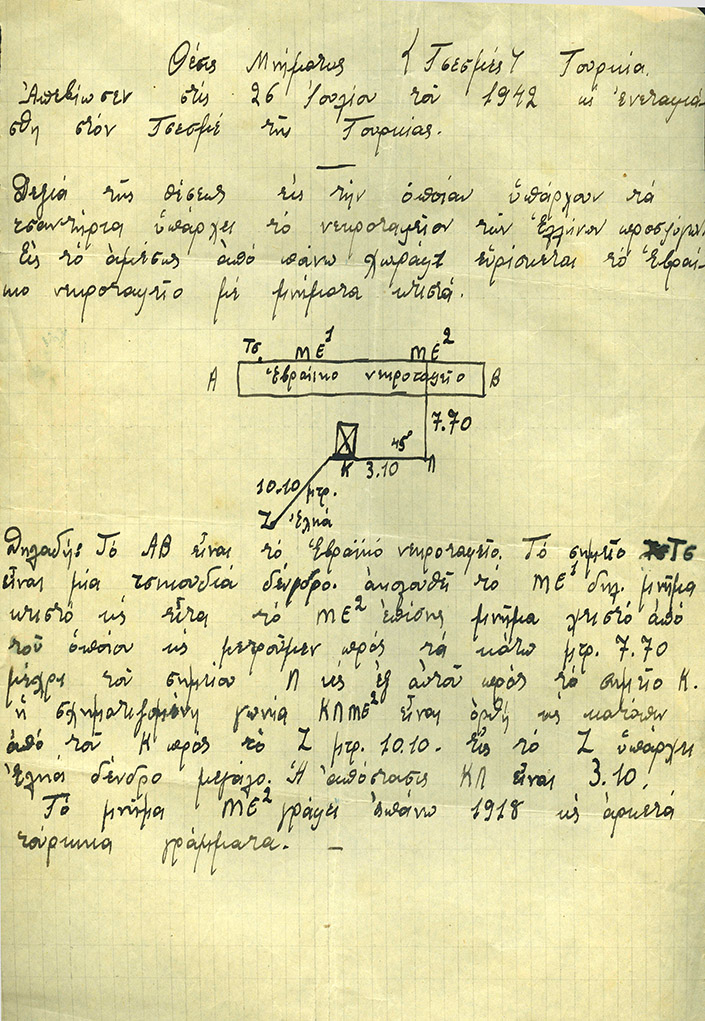 Θέσις Μνήματος {Τσεσμές} Τουρκία.
Ἀπεβίωσεν στίς 26 Ἰουλίου τοῦ 1942 κς ἐνεταφιά-
σθη στόν Τσεσμέ τῆς Τουρκίας.
Δεξιά τῆς θέσεως εἰς τήν ὁποίαν ὑπάρχουν τά
τσαντήρια ὑπάρχει τό νεκροταφεῖον τῶν Ἑλλήνων προσφύγων.
Εἰς τό ἀμέσως ἀπό πάνω χωράφι εὑρίσκεται τό Ἑβραι-
κο νεκροταφεῖο μέ μνήματα κτιστά.
Τσ. ΜΕ1 ΜΕ2
Α Ἑβραικο νεκροταφεῖο Β
7.70
45°
Κ 3.10 Λ
10.10 μτρ.
Ζ Ἐληά
Δηλαδή: Τό ΑΒ εἶναι τό Ἑβραϊκό νεκροταφεῖο. Τό σημεῖο Τσ
εἶναι μία τσικουδιά δένδρο. ἀκολουθῆ τό ΜΕ1 δηλ. μνῆμα
κτιστό κς εἶτα τό ΜΕ2 ἐπίσης μνῆμα χτιστό ἀπό
τοῦ ὁποίου κς μετροῦμεν πρός τά κάτω μτρ. 7.70
μέχρι τοῦ σημείου Λ κς ἐξ αὐτοῦ πρός τό σημεῖο Κ.
ἡ σχηματιζομένη γωνία ΚΛΜΕ2 εἶναι ὀρθή κς κατόπιν
ἀπό τοῦ Κ πρός τό Ζ μτρ. 10.10. Εἰς τό Ζ ὑπάρχει
ἐληά δένδρο μεγάλο. Ἡ ἀπόστασις ΚΛ εἶναι 3.10.
Τό μνῆμα ΜΕ2 γράφει ἐπάνω 1918 κς ἀρκετά
τούρκικα γράμματα. —